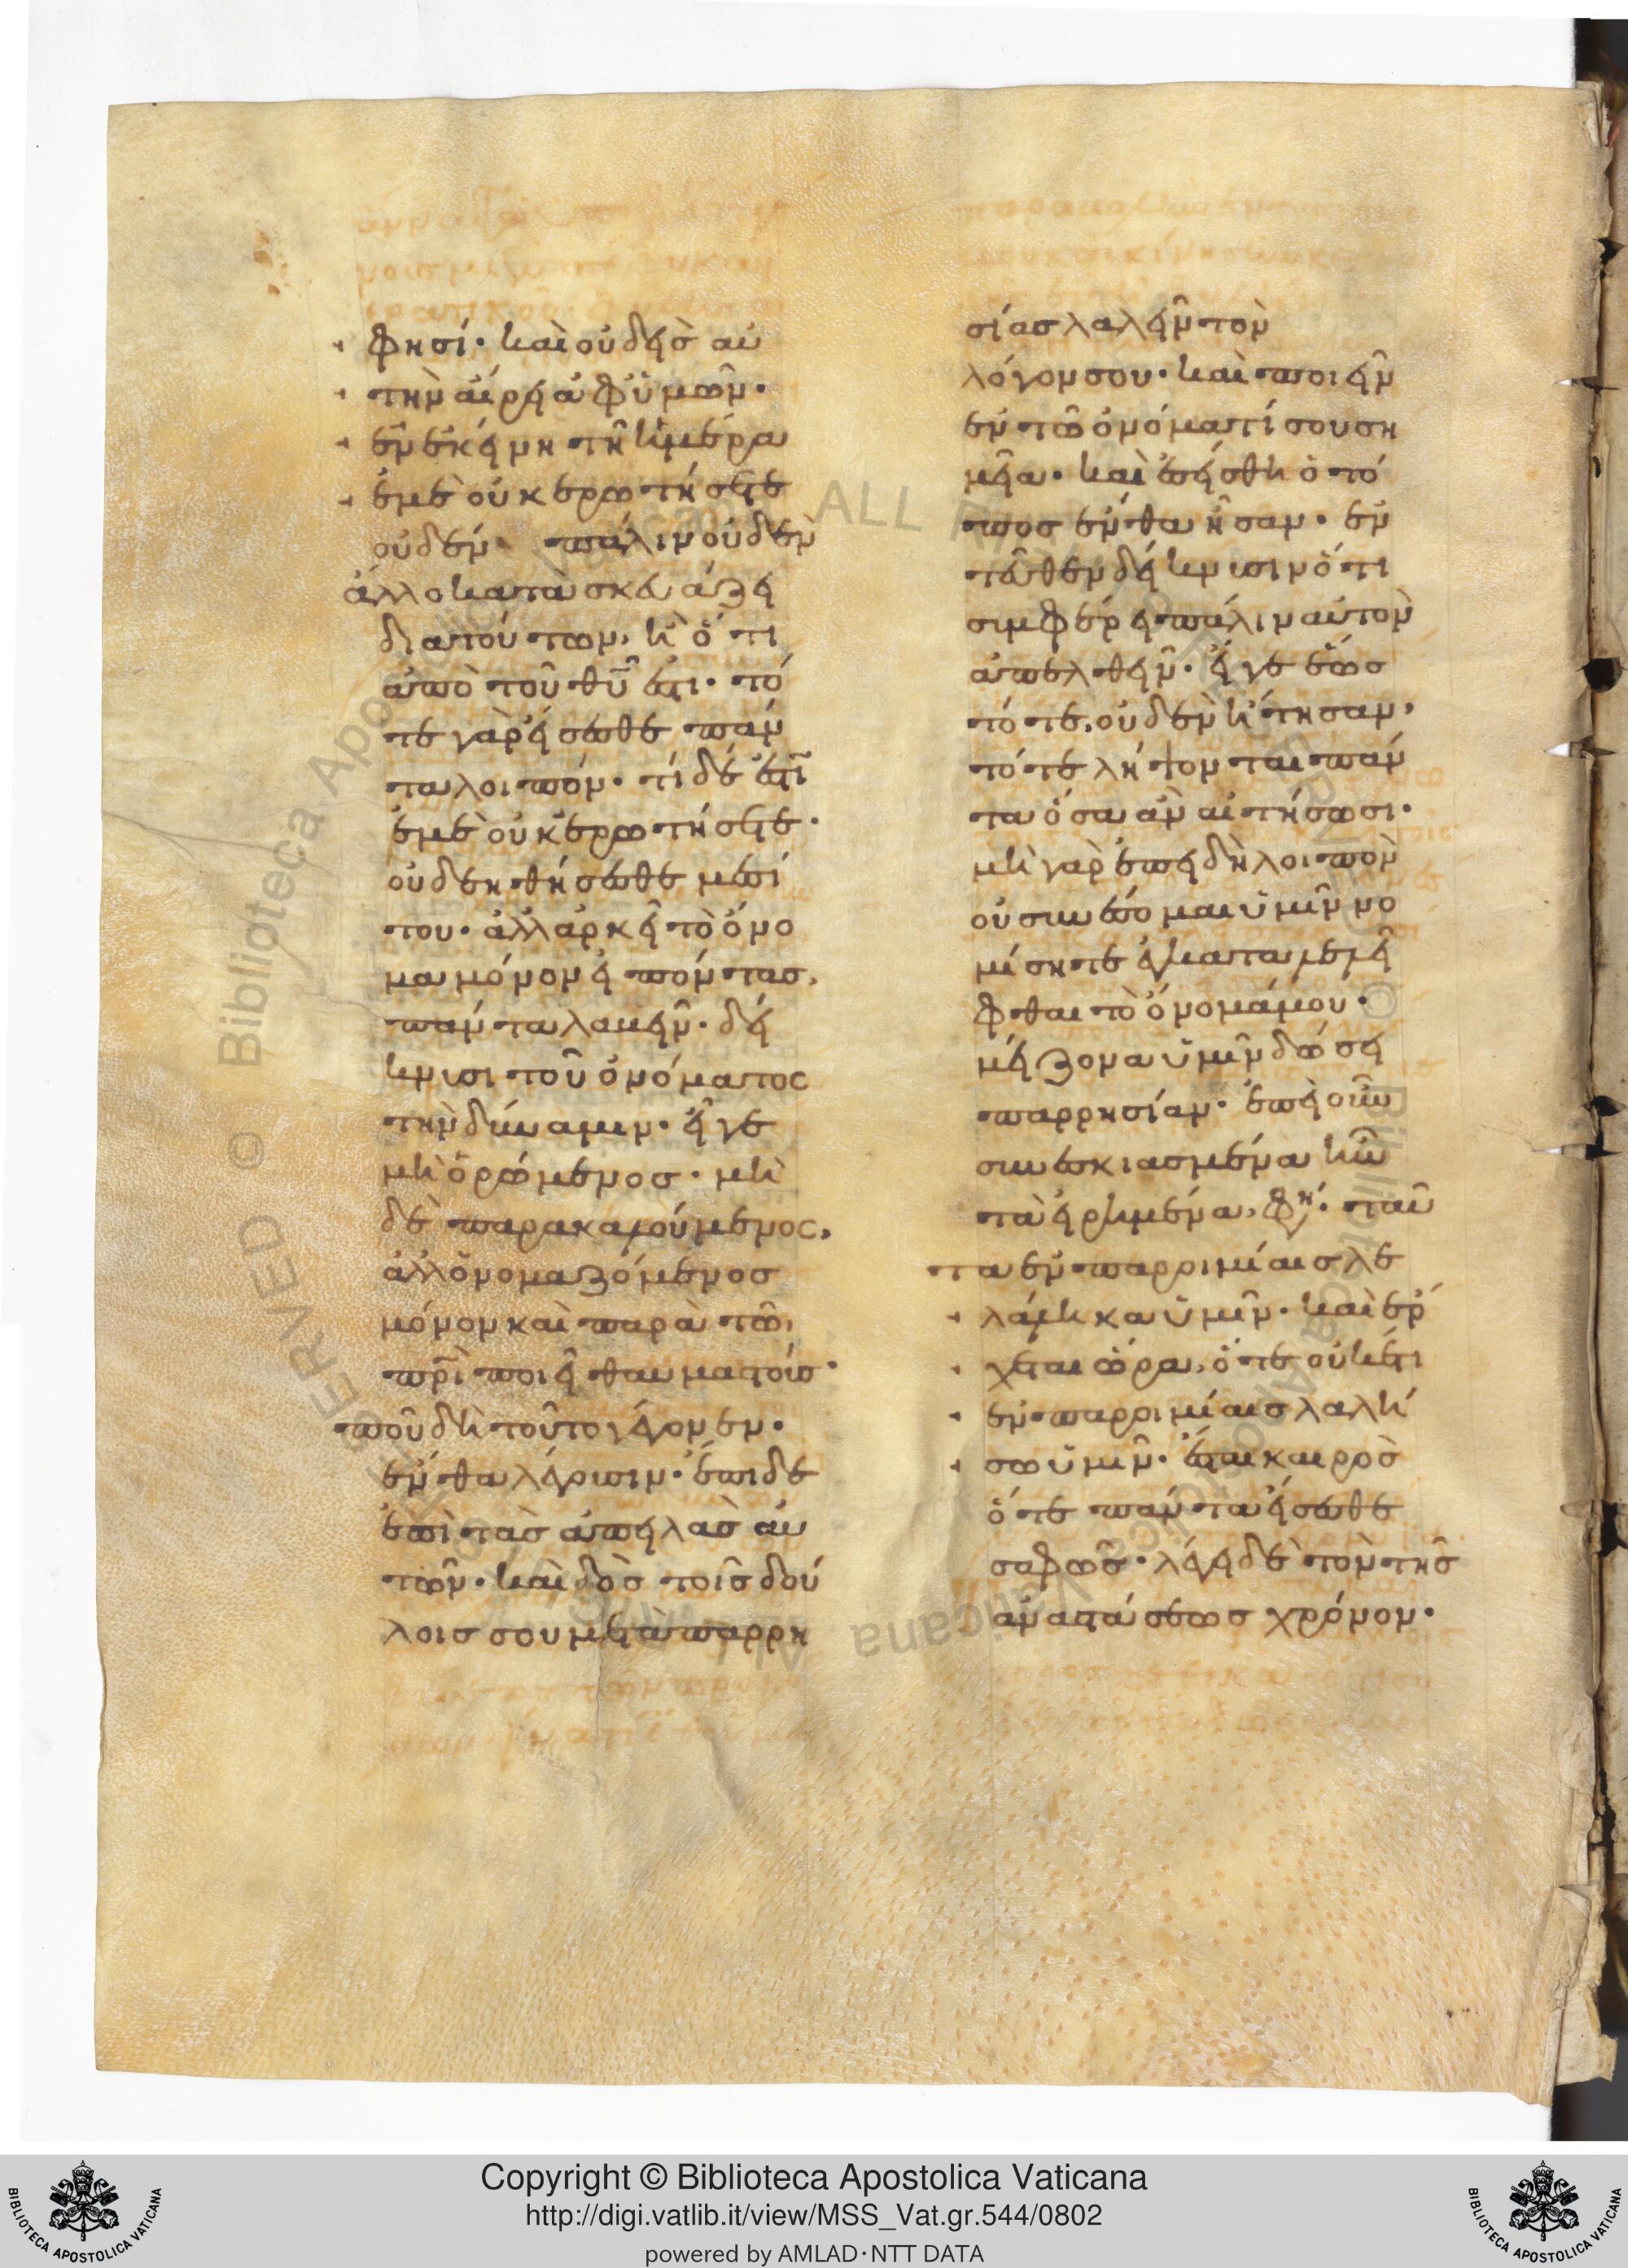 φησί· καὶ οὐδεὶς αὐ
τὴν αἴρει ἀφ' ὑμῶν·
ἐν ἐκείνη τῆ ἡμέρα
ἐμὲ οὐκ ἐρωτήσετε
οὐδέν· πάλιν οὐδὲν
ἄλλο κατασκευάζει
διατούτων, ἢ ὅτι
ἀπὸ τοῦ θῦ ἐστι· τό
τε γὰρ εἴσεσθε πάν
τα λοιπόν· τί δέ ἐστῖ
ἐμὲ οὐκ ἐρωτήσετε·
οὐ δεηθήσεσθε μεσί
του· ἀλλ' ἀρκεῖ τὸ ὄνο
μα μόνον εἰπόντας,
πάντα λαβεῖν· δεί
κνυσι τοῦ ὀνόματος
τὴν δύναμιν· εἴγε
μὴ ὁρώμενος· μὴ
δὲ παρακαλούμενος,
ἀλλ' ὀνομαζόμενος
μόνον καὶ παρὰ τῶ
πρὶ ποιεῖ θαυμαστούς·
ποῦ δὴ τοῦτο γέγονεν·
ἔνθα λέγουσιν· ἔπιδε
ἐπὶ τὰς ἀπειλὰς αὐ
τῶν· καὶ δὸς τοῖς δού
λοις σου μετὰ παρρη
σίας λαλεῖν τὸν
λόγον σου· καὶ ποιεῖν
ἐν τῶ ὀνόματί σου ση
μεῖα· καὶ ἐσείσθη ὁ τό
πος ἔνθα ἦσαν· ἐν
ταῦθεν δείκνυσιν ὅτι
συμφέρει πάλιν αὐτὸν
ἀπελθεῖν· εἴγε ἕως
τότε, οὐδὲν ἤτησαν,
τότε λήψονται πάν
τα ὅσα ἂν αἰτήσωσι·
μὴ γὰρ ἐπειδὴ λοιπὸν
οὐ συνέσομαι ὑμῖν νο
μίσητε ἐγκαταλελεῖ
φθαι τὸ ὄνομά μου·
μείζονα ὑμῖν δώσει
παρρησίαν· ἐπεὶ οὖν
συνεσκιασμένα ἦν
τὰ εἰρημένα, φη· ταῦ
τα ἐν παροιμίαις λε
λάληκα ὑμῖν· καὶ ἔρ
χεται ὥρα, ὅτε οὐκέτι
ἐν παροιμίαις λαλή
σω ὑμῖν· ἔσται καιρὸς
ὅτε πάντα εἴσεσθε
σαφῶς· λέγει δὲ τὸν τῆς
ἀναστάσεως χρόνον·
Copyright © Biblioteca Apostolica Vaticana
http://digi.vatlib.it/view/MSS_Vat.gr.544/0802
powered by AMLAD·NTT DATA